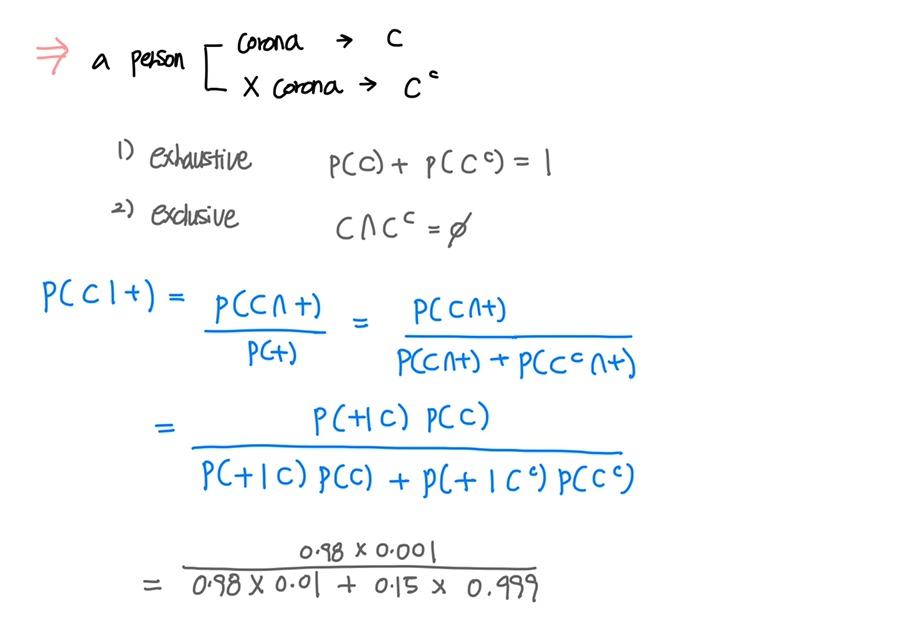 ⇒ a person [ corona → C
X corona → Cᶜ
1) exhaustive P(C) + P(Cᶜ) = 1
2) exclusive C∩Cᶜ = ∅
P(C|+) = P(C∩+) / P(+) = P(C∩+) / P(C∩+) + P(Cᶜ∩+)
= P(+|C) P(C) / P(+|C) P(C) + P(+|Cᶜ) P(Cᶜ)
= 0.98 × 0.001 / 0.98 × 0.01 + 0.15 × 0.999